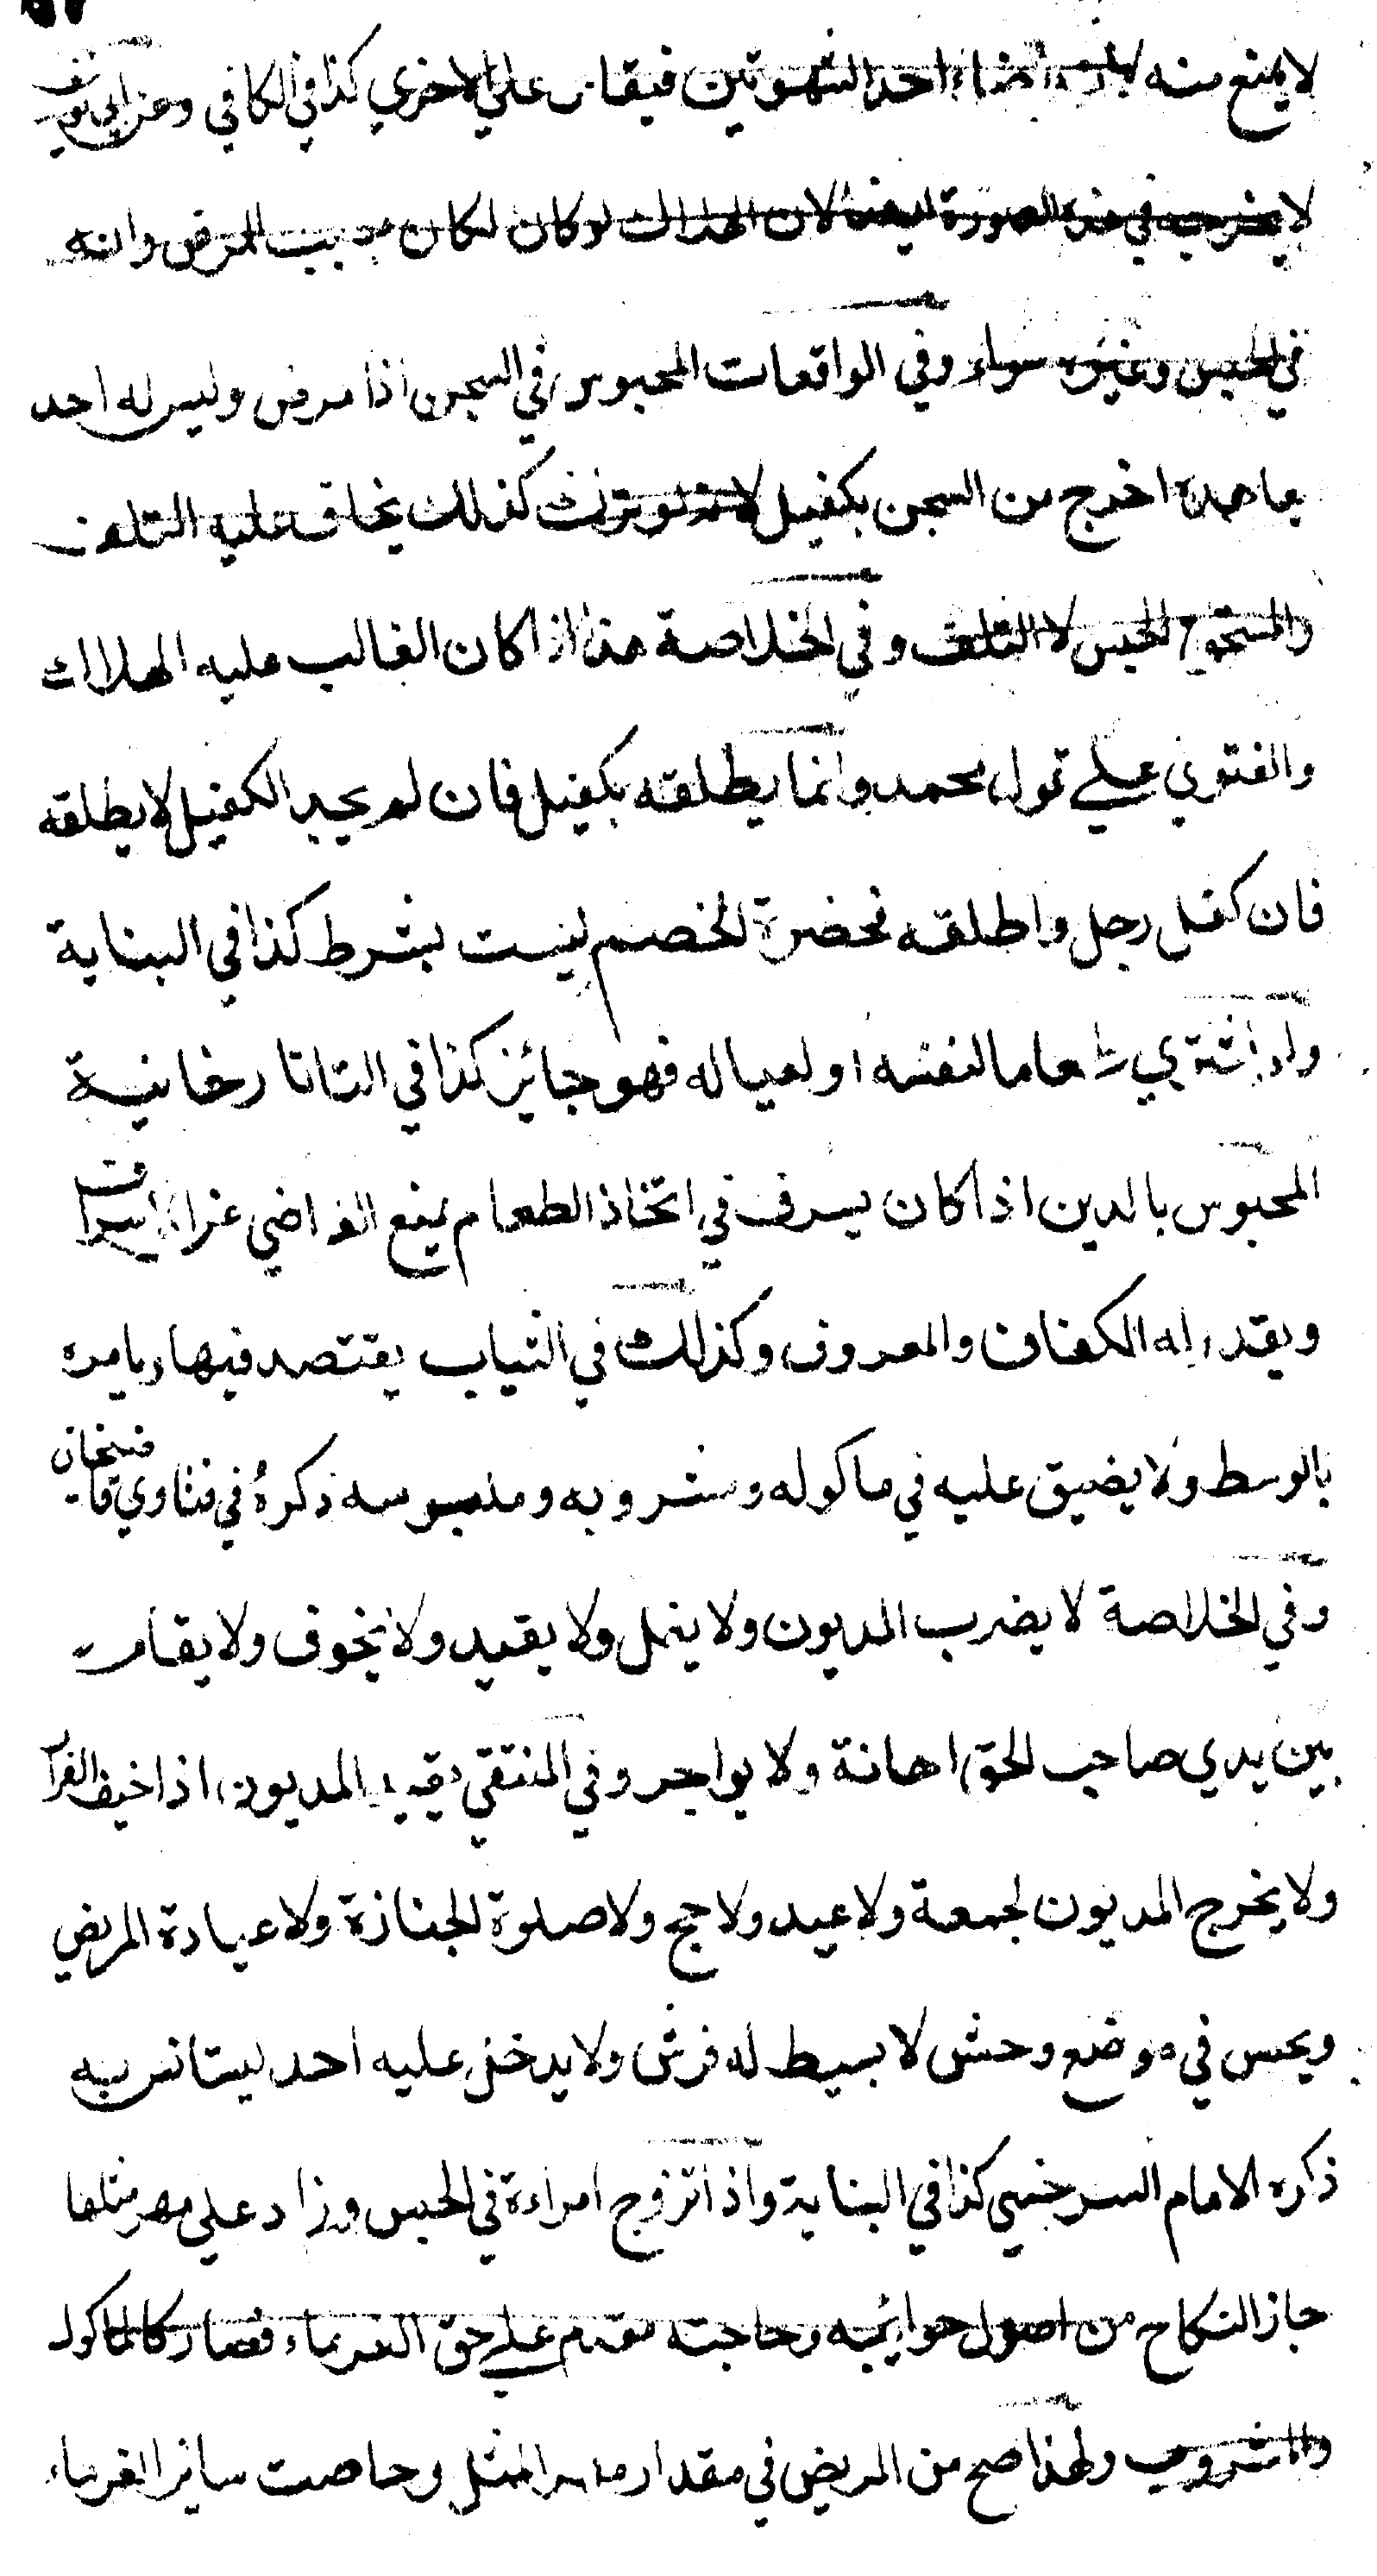 لا يمنع منه لانه اقضاء احد الشهوتين فيقاس علي الاخري كذا في الكافي وعن ابي يوسف
لا يخرجه في هذه الصورة ايضا لان الهلاك لو كان لكان بسبب المرض وانه
في الحبس وغيره سواء وفي الواقعات المحبوس في السجن اذا مرض وليس له احد
يعاهده اخرج من السجن بكفيل لانه لو ترك كذلك يخاف عليه التلف
والمستحق الحبس لا التلف وفي الخلاصة هذا اذا كان الغالب عليه الهلاك
والفتوي علي قول محمد وانما يطلقه بكفيل فان لم يجد الكفيل لا يطلقه
فان كفل رجل واطلقه بحضرة الخصم ليست بشرط كذا في البناية
واذ اشتري طعاما لنفسه او لعياله فهو جائز كذا في التاتارخانية
المحبوس بالدين اذا كان يسرف في اتخاذ الطعام يمنع القاضي عن الاسراف
ويقدر له الكفاف والمعروف وكذلك في الثياب يقتصد فيها ويامره
بالوسط ولا يضيق عليه في ماكوله ومشروبه وملبوسه ذكره في فتاوي قاضيخان
وفي الخلاصة لا يضرب المديون ولا يغل ولا يقيد ولا يخوف ولا يقام
بين يدي صاحب الحق اهانة ولا يواجر وفي المنتقي يقيد المديون اذا خيف الفرار
ولا يخرج المديون لجمعة ولا عيد ولا حج ولا صلوة الجنازة ولا عيادة المريض
ويحبس في موضع وحش لا بسيط له فرش ولا يدخل عليه احد ليستانس به
ذكره الامام السرخسي كذا في البناية واذا تزوج امراءة في الحبس وزاد علي مهر مثلها
جاز النكاح من اصول حوائجه وحاجته مقدم علي حق الغرماء فصار كالماكول
والمشروب ولهذا صح من المريض في مقدار مهر المثل وحاصت سائر الغرماء